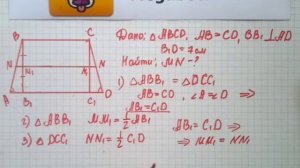 B C
M N
N₁
A B₁ C₁ D
Дано: △ABCD, AB=CD, BB₁⊥AD
B₁D=7см
Найти: MN-?
1) △ABB₁=△DCC₁
AB=CD, ∠A=∠D ⇒
AB₁=C₁D
2) △ABB₁ MM₁=½AB₁
AB₁=C₁D ⇒
3) △DCC₁ NN₁=½C₁D
⇒ MM₁=NN₁